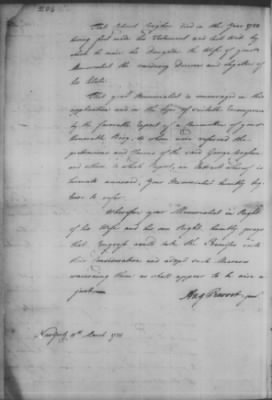 That Colonel Croghan died in the Year 1782
having first made his Testament and last Will by
which he made his Daughter the Wife of your
Memorialist the residuary Devisee and Legatee of
his Estate.
That your Memorialist is encouraged in this
application and in the hope of suitable Recompence
by the favorable report of a Committee of your
Honorable Body, to whom were referred the
pretensions and Claims of the said George Croghan
and others in which Report, an Extract whereof is
hereunto annexed, Your Memorialist humbly begs
leave to refer
Wherefore your Memorialist in Right
of his Wife and his own Right humbly prays
that Congress would take the Premises into
their Consideration and adopt such Measures
concerning them as shall appear to be wise &
just
Aug Prevost
New York 11th March